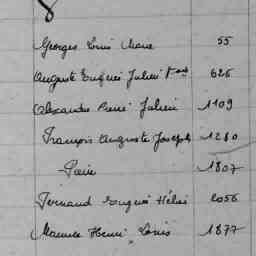 Georges Louis Marie 55
Auguste Eugène Julien 626
Alexandre René Julien 1109
François Auguste Joseph 1280
Pierre 1807
Fernand Eugène Hélie 2056
Maurice Henri Louis 1877